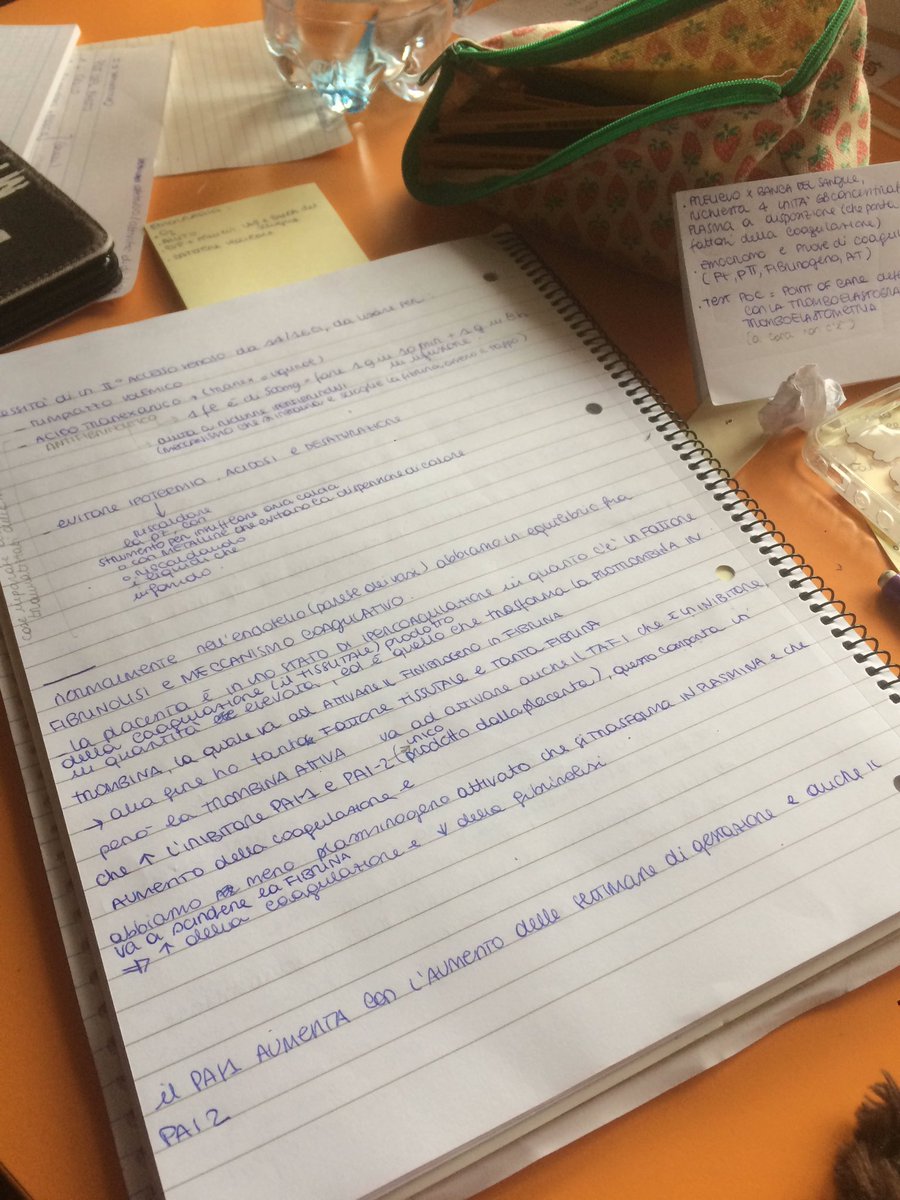 essità di un II° ACCESSO VENOSO da 14/16G, da usare per:
- RIMPIAZZO VOLEMICO
- ACIDO TRANEXAMICO → (TRANEX o UGUROL)
ANTIFIBRINOLITICO
1 fl è di 500mg → fare 1g in 10 min + 1g in 8h
in infusione.
aiuta a ridurre
(MECCANISMO che si instaura e scioglie la fibrina, ovvero il tappo)
- EVITARE IPOTERMIA, ACIDOSI e DESATURAZIONE
↓
riscaldare
la pz, con
strumento per insufflare aria calda
o con METALLINE che evitano la dispersione di calore
o riscaldando
i liquidi che
infondo.
normalmente nell'endotelio (parete dei vasi) abbiamo un equilibrio fra
FIBRINOLISI e MECCANISMO COAGULATIVO.
- la placenta è in uno stato di IPERCOAGULAZIONE in quanto c'è un FATTORE
della COAGULAZIONE (il TISSUTALE) prodotto
in quantità elevata, ed è quello che trasforma la PROTROMBINA IN
TROMBINA, la quale va ad ATTIVARE il FINIBROGENO in FIBRINA
→ alla fine ho tanto FATTORE TISSUTALE e tanta FIBRINA
però la TROMBINA ATTIVA va ad attivare anche il TAFI che È UN INIBITORE,
che ↑ l'INIBITORE PAI-1 e PAI-2 (prodotto dalla placenta), questo comporta un'
UNICO
AUMENTO della coagulazione e
abbiamo meno plasminogeno attivato che si trasforma in PLASMINA e che
va a scindere la FIBRINA
⇒ ↑ della coagulazione e ↓ della fibrinolisi
il PAI-1 AUMENTA con l'AUMENTO delle settimane di gestazione e anche il
PAI 2
• PRELIEVO X BANCA DEL SANGUE,
richiesta 4 UNITÀ GB concentrat
PLASMA a disposizione (che porta
fattori della coagulazione)
EMOCROMO e PROVE di coagul
(PT, PTT, FIBRINOGENO, AT)
• TEST POC = POINT OF CARE
CON LA TROMBOELASTOGRA
TROMBOELASTOMETRIA